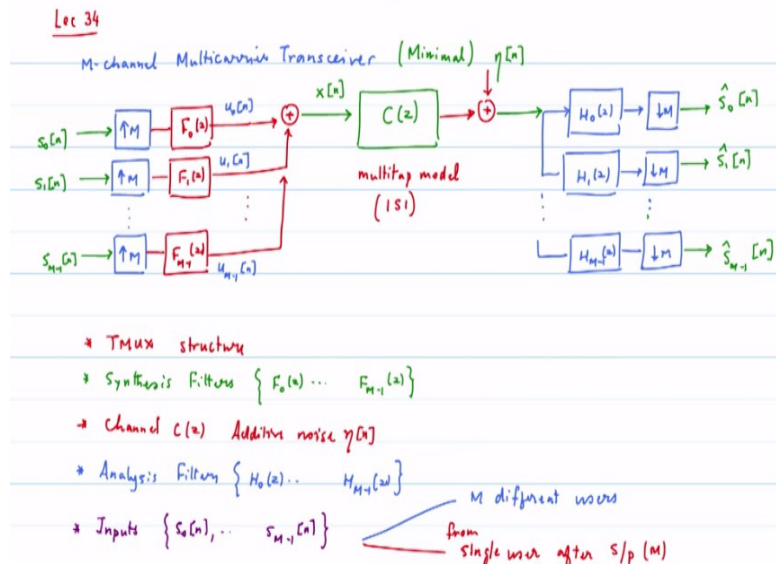 Lec 34
M-channel Multicarrier Transceiver (Minimal) η[n]
s₀[n] ↑M F₀(z) u₀[n] + x[n] C(z) + H₀(z) ↓M ŝ₀[n]
s₁[n] ↑M F₁(z) u₁[n] multitap model H₁(z) ↓M ŝ₁[n]
(ISI)
s_{M-1}[n] ↑M F_{M-1}(z) u_{M-1}[n] H_{M-1}(z) ↓M ŝ_{M-1}[n]
* TMUX structure
* Synthesis Filters { F₀(z) ... F_{M-1}(z) }
* Channel C(z) Additive noise η[n]
* Analysis Filters { H₀(z) .. H_{M-1}(z) }
M different users
* Inputs { s₀[n], .. s_{M-1}[n] }
from
single user after S/P (M)